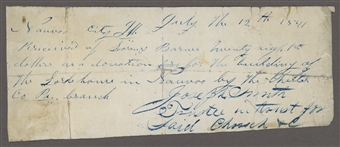 Nauvoo City Ill July the 12th 1841
Received of Barnes twenty eight
dollars as a donation for the building of
the Lords house in Nauvoo by the
Co Pa, branch
Joseph Smith
Trustee in trust for
Said Church &C